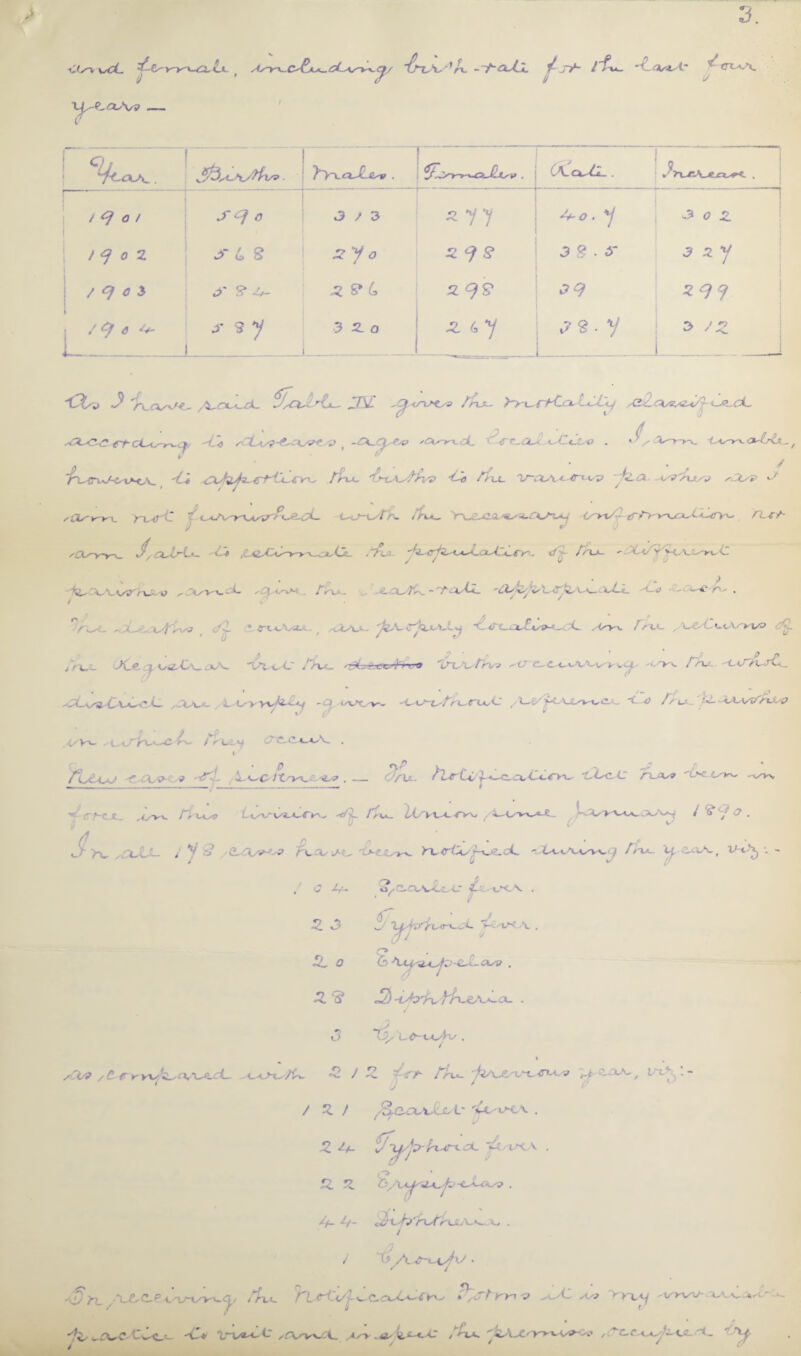 3.
and female, including birth-rate for the last four
years —
Year. Births. Males. Females. Rate. Increase.
1901 590 313 277 40.7 302
1902 568 270 298 38.5 327
1903 584 286 298 39 299
1904 587 320 267 38.7 312
As I have said Table IV gives the mortality classified
according to diseases, ages and localities. I am unable,
however, to apportion the births to the various parishes as I
am not furnished with the necessary information nor
am I able to estimate the population of the different
parishes and give the death-rate appropriate to each.
The deaths, of course, are properly localised in the returns of
the Registrar but the births occurring in the whole
district are simply given without reference to the parishes
in which they occur.
New cases of sickness. — The Notification Act has been in
force in this division of the Union since January 1890.
In all 178 cases have been notified during the year, viz: -
104 Scarlet fever.
23 Typhoid fever.
20 Erysipelas.
28 Diphtheria.
3 Croup.
as compared with 212 for the previous year, viz: -
121 Scarlet fever.
24 Typhoid fever.
22 Erysipelas.
44 Diphtheria.
1 Croup.
On receiving the Notification Forms it is my invariable
practice to visit and inspect the premises occupied by